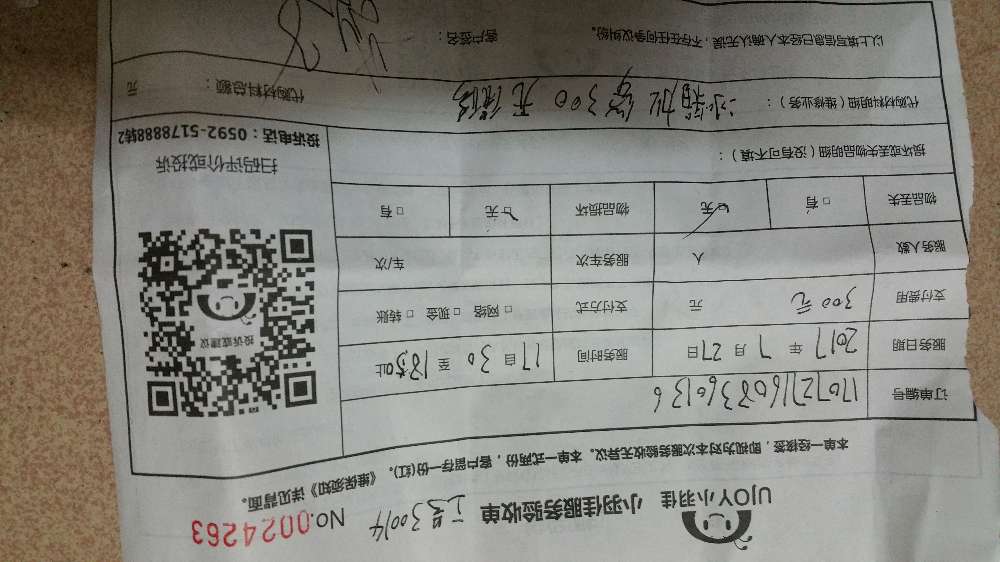 UJOY小羽佳 小羽佳服务验收单 工号30014 No.0024263
本单一经接签，即视为对本次服务验收无异议。本单一式两份，客户留存一份(红)。《维保须知》详见背面。
订单编号 17072716083606136
服务日期 2017 年 7 月 27 日 服务时间 17 自 30 至 18:50 止
支付费用 300元 元 支付方式 □ 网络 □ 现金 □ 转账
服务人数 人 服务车次 车/次
物品丢失 □ 有 □ 无 物品损坏 □ 无 □ 有
投诉或建议
损坏或丢失物品明细（没有可不填）：
扫码评价或投诉
投诉电话：0592-5178888转2
代购材料明细（维修业务）： 冰箱加 300 元
代购材料总额： 元
以上填写信息已经本人确认无误，不存在任何争议纠纷。 客户签名：